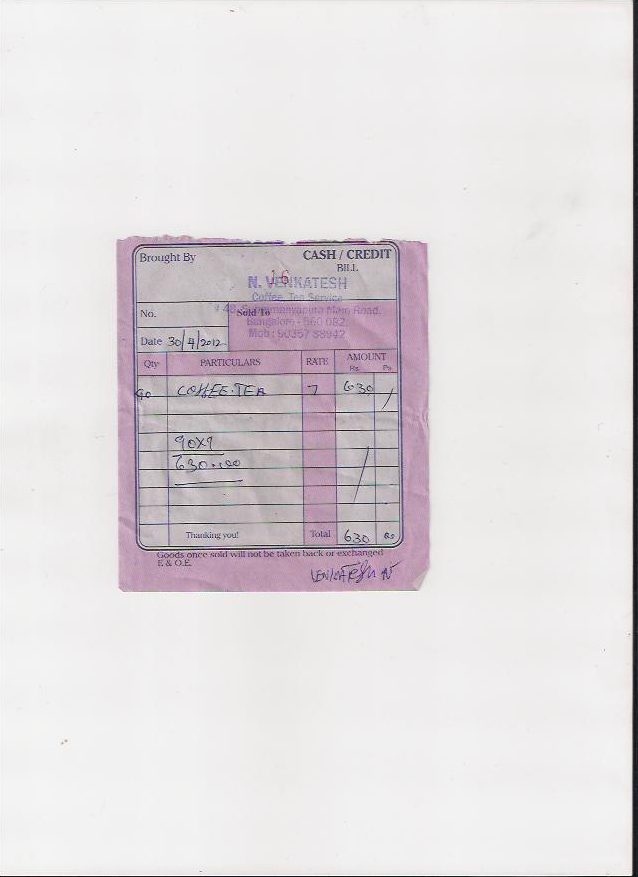 Brought By CASH / CREDIT
BILL
16
N. VENKATESH
Coffee, Tea Service
No. Sold To Main Road,
Bangalore - 560 082.
Mob : 90357 88942
Date 30/4/2012
Qty. PARTICULARS RATE AMOUNT
Rs. Ps.
90 COFFEE.TEA 7 630
90X7
630.00
Thanking you! Total 630
Goods once sold will not be taken back or exchanged
E & O.E.
VENKATESH N